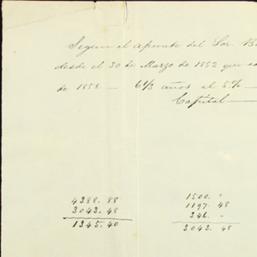 Segun el apunte del Sor.
desde el 30 de Marzo de 1852 que
de 1858 — 6 1/3 años al 5% —
Capital —
4388. 88
3043. 48
1345. 40
1500. "
1197. 48
346. "
3043. 48